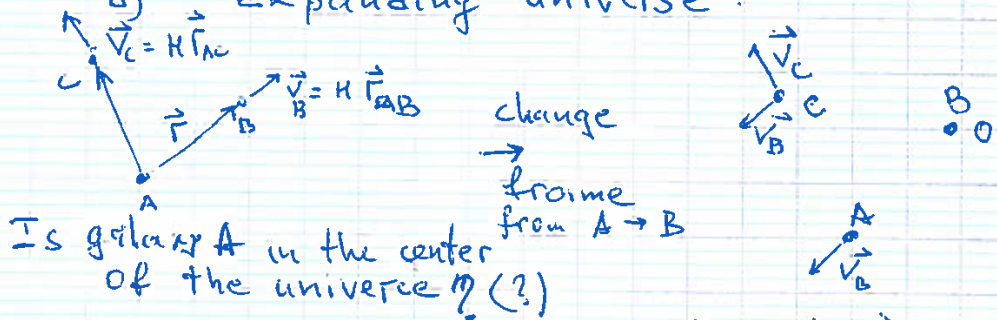 expanding universe.
V⃗_C = H r⃗_AC
C
V⃗_B = H r⃗_AB
r⃗
B
A
change
→
frame
from A → B
V⃗_C
C
V⃗_B
B
O
A
V⃗_B
Is galaxy A in the center
of the universe ? (?)